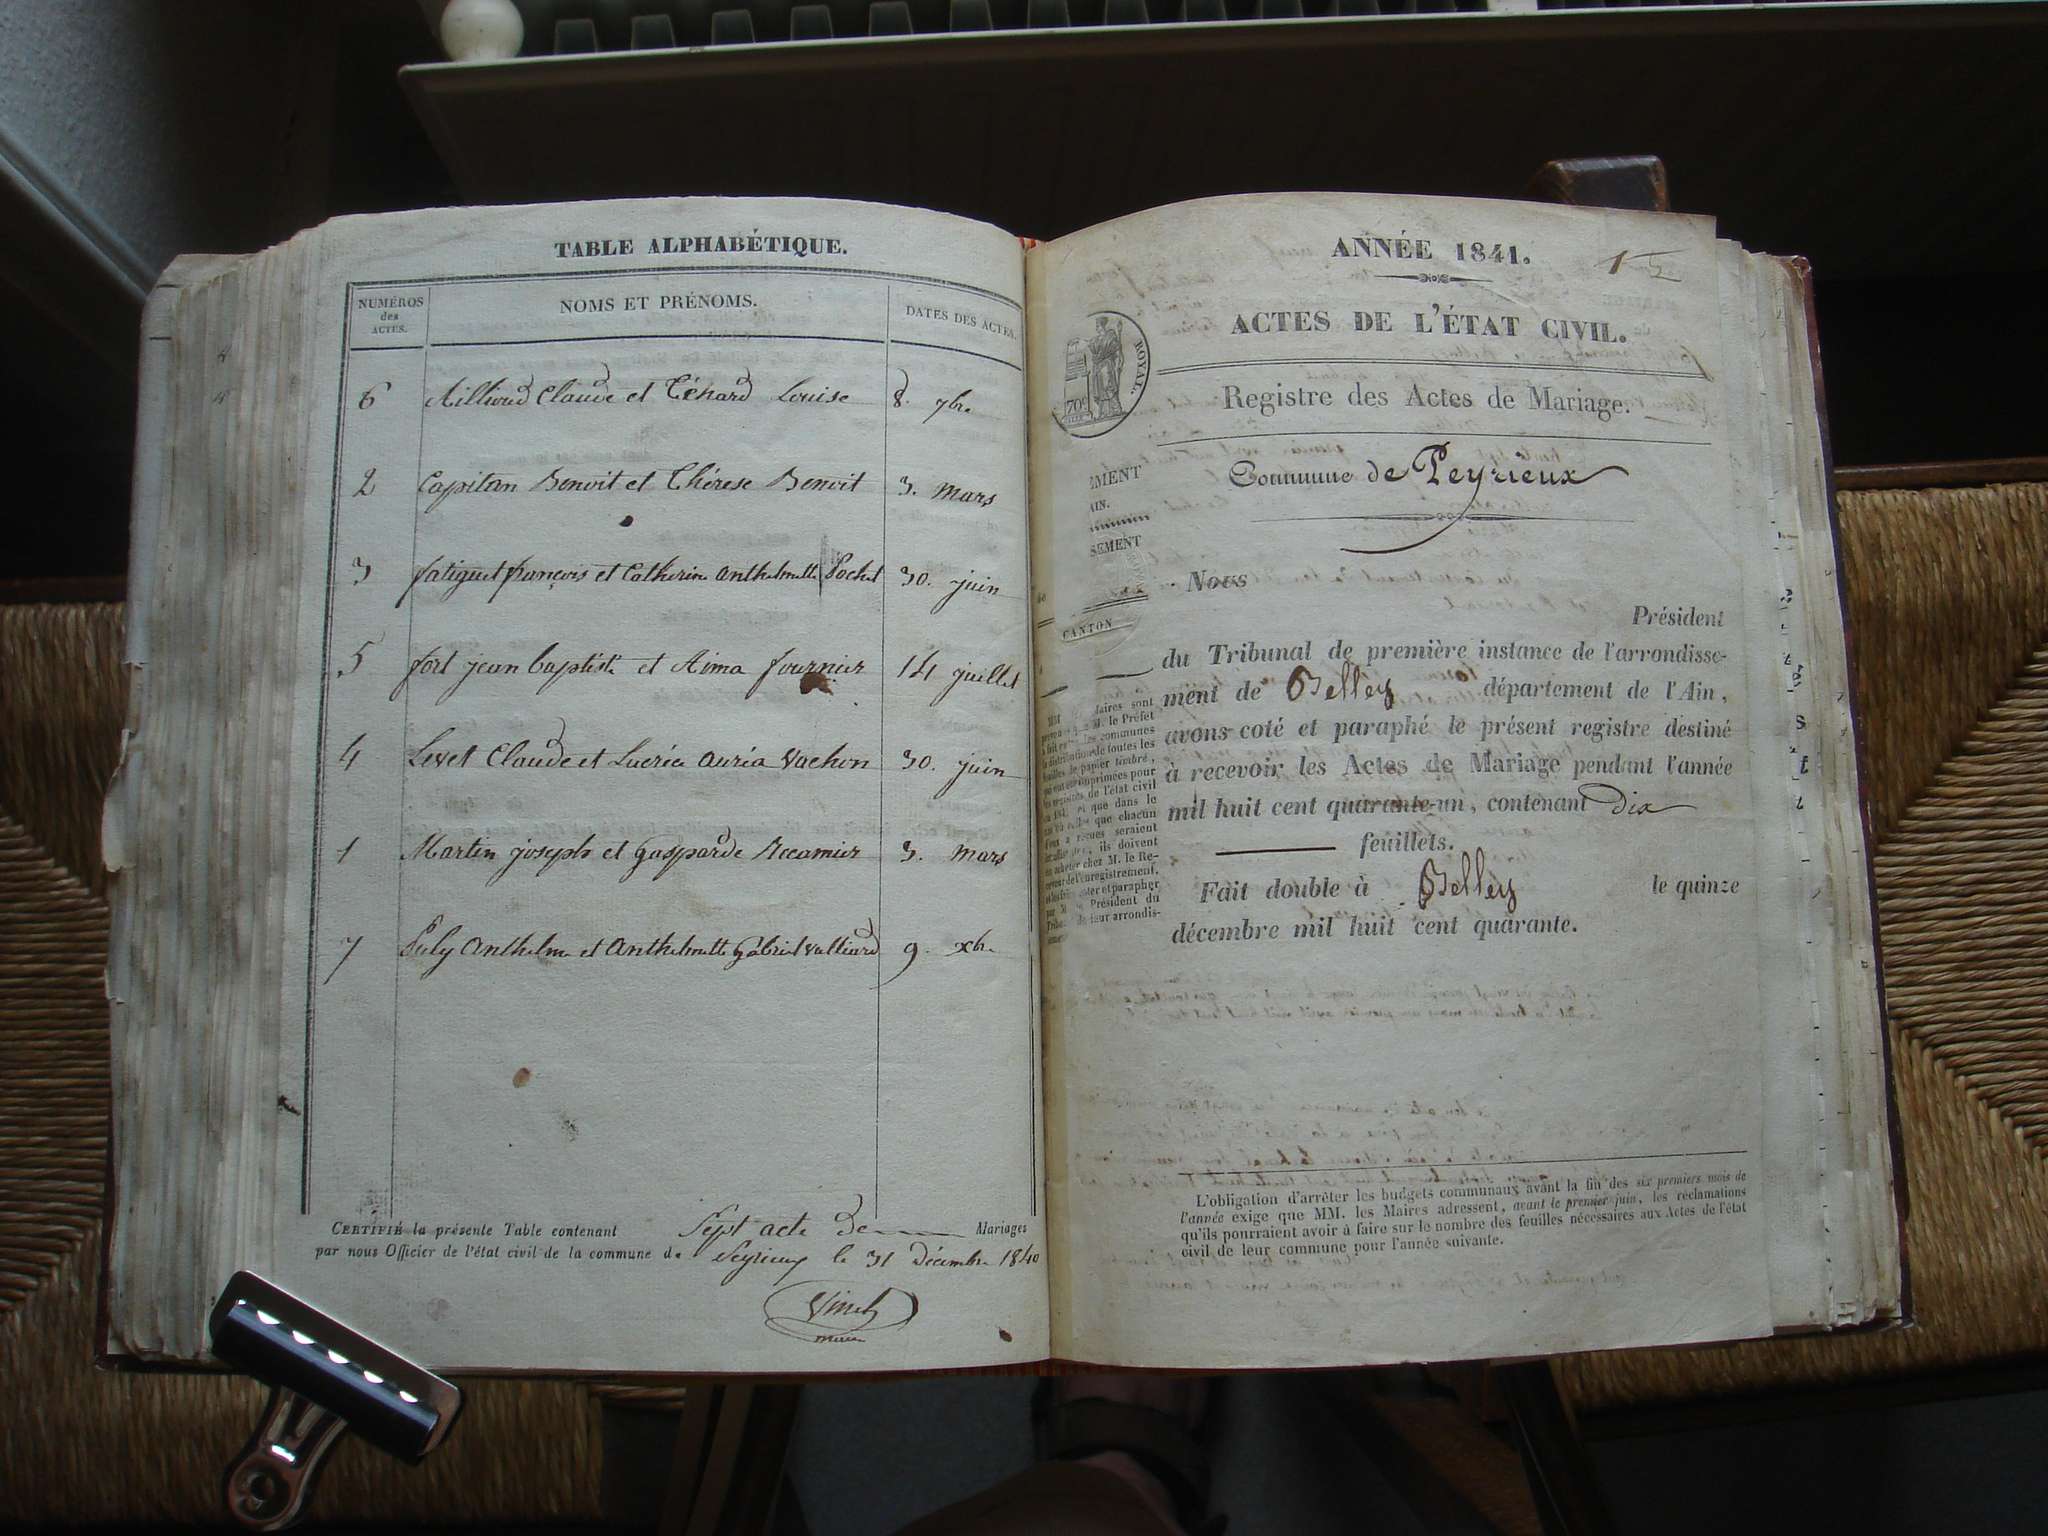 TABLE ALPHABÉTIQUE.
NUMÉROS
des
ACTES.
NOMS ET PRÉNOMS.
DATES DES ACTES.
6 Millioud Claude et Louise 8. 7bre
2 Capitan Benoit et Thérese Benoit 3. mars
3 fatiguet françois et Catherine anthelmette Pochet 30. juin
5 fort jean baptiste et Aima fournier 14 juillet
4 Levet Claude et auria Vachon 30. juin
1 Martin joseph et gasparde Recamier 3. mars
7 anthelme et anthelmette gabriel 9. xbre
CERTIFIÉ la présente Table contenant Sept acte de Mariages
par nous Officier de l'état civil de la commune de Peyrieux le 31 Décembre 1840
maire
ANNÉE 1841.
1
ACTES DE L'ÉTAT CIVIL.
ROYAL.
70c
Registre des Actes de Mariage.
Commune de Peyrieux
EMENT
AIN.
SEMENT
CANTON
Nous
Président
du Tribunal de première instance de l'arrondisse-
ment de Belley département de l'Ain,
avons coté et paraphé le présent registre destiné
à recevoir les Actes de Mariage pendant l'année
mil huit cent quarante-un, contenant dix
feuillets.
Fait double à Belley le quinze
décembre mil huit cent quarante.
Maires sont
M. le Préfet
communes
la distribution de toutes les
feuilles de papier timbré,
imprimées pour
de l'état civil
que dans le
que chacun
reçues seraient
ils doivent
acheter chez M. le Re-
ceveur de l'enregistrement,
et parapher
Président du
de leur arrondis-
L'obligation d'arrêter les budgets communaux avant la fin des six premiers mois de
l'année exige que MM. les Maires adressent, avant le premier juin, les réclamations
qu'ils pourraient avoir à faire sur le nombre des feuilles nécessaires aux Actes de l'état
civil de leur commune pour l'année suivante.